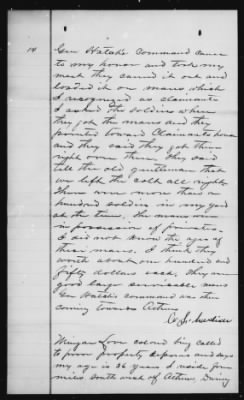 14
Gen Hatchs Command came
to my honor and took my
meat they carried it out and
loaded it on mares which
I recognized as claimants
I asked the soldiers where
they got the mares and they
pointed toward Claimants house
and they said they got them
right over there. They said
tell the old gentleman that
we left the colt all right.
There were more than a
hundred soldiers in my yard
at the time. The mares were
in possession of privates.
I did not know the ages of
these mares. I think they
worth about one hundred and
forty dollars each. They are
good large serviceable mares
Gen Hatchs command was then
coming towards
Love colored being called
to prove property deposes and says
my age is 36 years I reside four
miles south west of During